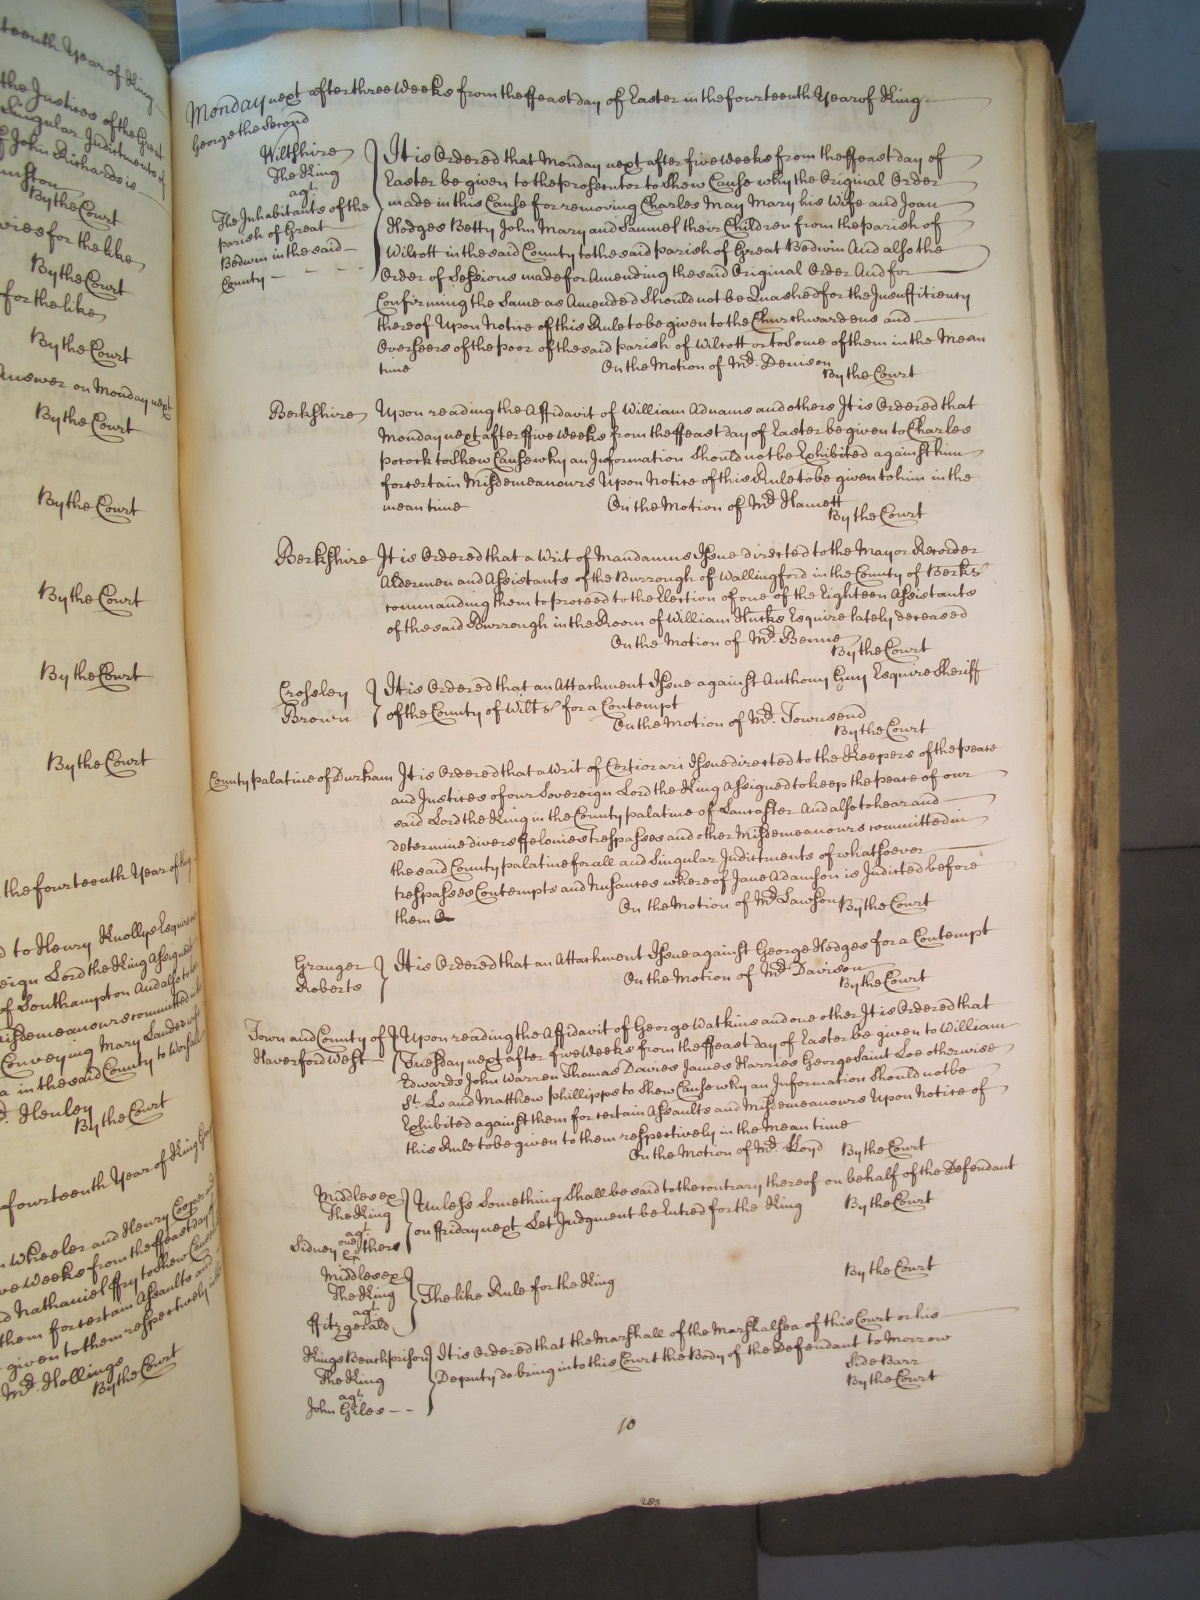 teenth Year of King
the Justices of the Great
Singular Indictments of
of John Richards is
By the Court
vies for the like
By the Court
for the like
By the Court
Answer on Monday next
By the Court
By the Court
By the Court
By the Court
By the Court
the fourteenth Year of King
d to Henry Knollys Esquire
eign Lord the King Assigned
of Southampton And also to
misdemeanours committed in
Conveying Mary Lander
a in the said County to
d. Henley
By the Court
fourteenth Year of King
Wheeler and Henry Cooper
ve Weeks from the ffeast day of
d Nathaniel ffry to Shew Cause
them for certain Assaults and
given to them respectively in
Mr. Hollings
By the Court
Monday next after three Weeks from the ffeast day of Easter in the fourteenth Year of King
George the Second
Wiltshire
The King
agt.
The Inhabitants of the
parish of Great
Bedwin in the said
County
It is Ordered that Monday next after five Weeks from the ffeast day of
Easter be given to the prosecutor to Shew Cause why the Original Order
made in this Cause for removing Charles May Mary his Wife and Joan
Hodges Betty John Mary and Samuel their Children from the parish of
Wilcott in the said County to the said parish of Great Bedwin And also the
Order of Sessions made for Amending the said Original Order And for
Confirming the Same as Amended Should not be Quashed for the Insufficiency
thereof Upon Notice of this Rule to be given to the Churchwardens and
Overseers of the poor of the said parish of Wilcott or to Some of them in the Mean
time On the Motion of Mr. Denison
By the Court
Berkshire Upon reading the Affidavit of William Adnams and others It is Ordered that
Monday next after ffive Weeks from the ffeast day of Easter be given to Charles
Pocock to Shew Cause why an Information Should not be Exhibited against him
for certain Misdemeanours Upon Notice of this Rule to be given to him in the
mean time On the Motion of Mr. Hamett
By the Court
Berkshire It is Ordered that a Writ of Mandamus Issue directed to the Mayor Recorder
Aldermen and Assistants of the Burrough of Wallingford in the County of Berks
commanding them to proceed to the Election of one of the Eighteen Assistants
of the said Burrough in the Room of William Hucks Esquire lately deceased
On the Motion of Mr. Benne
By the Court
Crossley
Brown
It is Ordered that an Attachment Issue against Anthony Guy Esquire Sheriff
of the County of Wilts for a Contempt
On the Motion of Mr. Townsend
By the Court
County palatine of Durham It is Ordered that a Writ of Certiorari Issue directed to the Keepers of the peace
and Justices of our Sovereign Lord the King Assigned to keep the peace of our
said Lord the King in the County palatine of Lancaster And also to hear and
determine divers ffelonies trespasses and other Misdemeanours committed in
the said County palatine for all and Singular Indictments of whatsoever
trespasses Contempts and Nusances whereof Jane Adamson is Indicted before
them On the Motion of Mr. Lawson By the Court
Granger
Roberts
It is Ordered that an Attachment Issue against George Hodges for a Contempt
On the Motion of Mr. Davison
By the Court
Town and County of
Haverford West
Upon reading the Affidavit of George Watkins and one other It is Ordered that
Tuesday next after five Weeks from the ffeast day of Easter be given to William
Edwards John Warren Thomas Davies James Harries George Saint Loe otherwise
St. Lo and Matthew Phillipps to Shew Cause why an Information Should not be
Exhibited against them for certain Assaults and Misdemeanours Upon Notice of
this Rule to be given to them respectively in the Mean time
On the Motion of Mr. Lloyd By the Court
Middlesex
The King
agt.
Sidney one others
Unless Something Shall be said to the contrary thereof on behalf of the Defendant
on ffriday next Let Judgment be Entred for the King By the Court
Middlesex
The King
agt.
ffitzgerald
The like Rule for the King
By the Court
Kings Bench prison
The King
agt.
John Giles
It is Ordered that the Marshall of the Marshalsea of this Court or his
Deputy do bring into this Court the Body of the Defendant to Morrow
Side Barr
By the Court
10